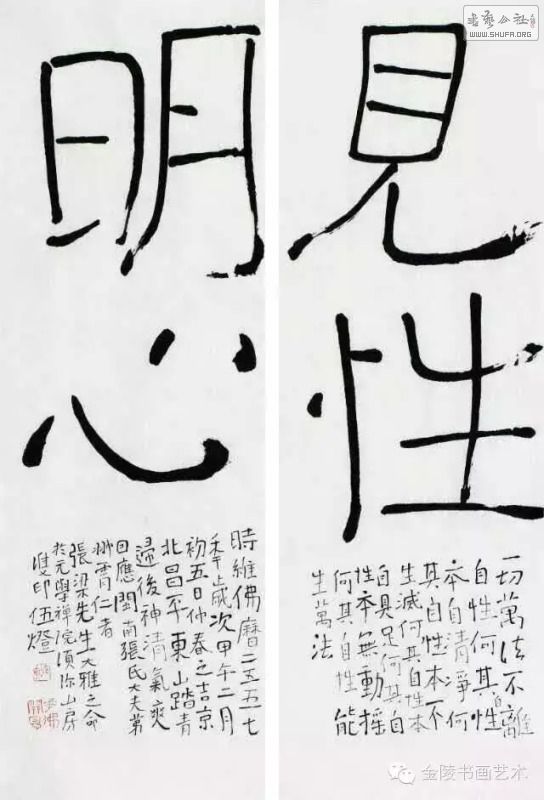 見性
一切萬法不離
自性何其自性
本自清淨何
其自性本不
生滅何其自性本
自具足何其自
性本無動搖
何其自性能
生萬法
明心
時維佛曆二五五七
年歲次甲午二月
初五日仲春之吉京
北昌平東山踏青
歸後神清氣爽
回應閩南張氏大夫第
霄仁者
張梁先生大雅之命
於元學禪院須弥山房
雙印伍燈
書藝公社
WWW.SHUFA.ORG
金陵书画艺术